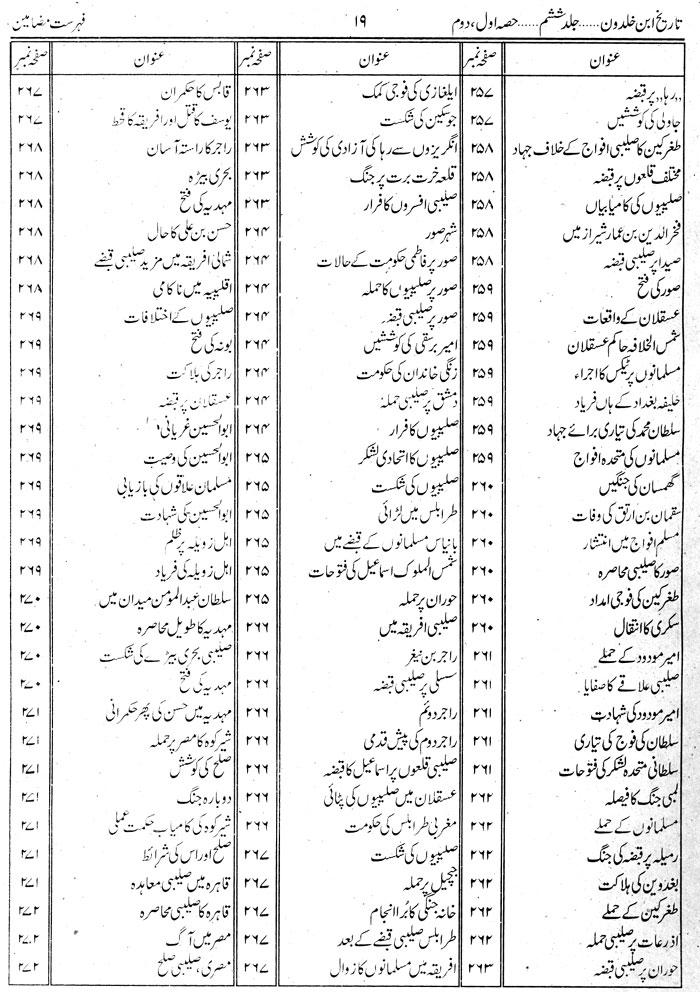 تاریخ ابن خلدون ...... جلد ششم ...... حصہ اول، دوم
۱۹
فہرست مضامین
عنوان صفحہ نمبر
"رہا" پر قبضہ ۲۵۷
جاولی کی کوششیں ۲۵۷
طغرکین کا صلیبی افواج کے خلاف جہاد ۲۵۸
مختلف قلعوں پر قبضہ ۲۵۸
صلیبیوں کی کامیابیاں ۲۵۸
فخر الدین بن عمار شیراز میں ۲۵۸
صیدا پر صلیبی قبضہ ۲۵۸
صور کی فتح ۲۵۹
عسقلان کے واقعات ۲۵۹
شمس الخلافہ حاکم عسقلان ۲۵۹
مسلمانوں پر ٹیکس کا اجراء ۲۵۹
خلیفہ بغداد کے ہاں فریاد ۲۵۹
سلطان محمد کی تیاری برائے جہاد ۲۵۹
مسلمانوں کی متحدہ افواج ۲۵۹
گھمسان کی جنگیں ۲۶۰
سقمان بن ارتق کی وفات ۲۶۰
مسلم افواج میں انتشار ۲۶۰
صور کا صلیبی محاصرہ ۲۶۰
طغرکین کی فوجی امداد ۲۶۰
سکری کا انتقال ۲۶۰
امیر مودود کے حملے ۲۶۱
صلیبی علاقے کا صفایا ۲۶۱
امیر مودود کی شہادت ۲۶۱
سلطان کی فوج کی تیاری ۲۶۱
سلطانی متحدہ لشکر کی فتوحات ۲۶۱
لمبی جنگ کا فیصلہ ۲۶۲
مسلمانوں کے حملے ۲۶۲
رمیلہ پر قبضہ کی جنگ ۲۶۲
بغدوین کی ہلاکت ۲۶۲
طغرکین کے حملے ۲۶۲
اذرعات پر صلیبی حملہ ۲۶۲
حوران پر صلیبی قبضہ ۲۶۳
عنوان صفحہ نمبر
ایلغازی کی فوجی کمک ۲۶۳
جوسکین کی شکست ۲۶۳
انگریزوں سے رہا کی آزادی کی کوشش ۲۶۳
قلعہ خرت برت پر جنگ ۲۶۳
صلیبی افسروں کا فرار ۲۶۳
شہر صور ۲۶۴
صور پر فاطمی حکومت کے حالات ۲۶۴
صور پر صلیبیوں کا حملہ ۲۶۴
صور پر صلیبی قبضہ ۲۶۴
امیر برسقی کی کوششیں ۲۶۴
زنگی خاندان کی حکومت ۲۶۴
دمشق پر صلیبی حملہ ۲۶۴
صلیبیوں کا فرار ۲۶۴
صلیبیوں کا اتحادی لشکر ۲۶۵
صلیبیوں کی شکست ۲۶۵
طرابلس میں لڑائی ۲۶۵
بانیاس مسلمانوں کے قبضے میں ۲۶۵
شمس الملوک اسماعیل کی فتوحات ۲۶۵
حوران پر حملہ ۲۶۵
صلیبی افریقہ میں ۲۶۶
راجر بن نیغر ۲۶۶
سسلی پر صلیبی قبضہ ۲۶۶
راجر دوئم ۲۶۶
راجر دوم کی پیش قدمی ۲۶۶
صلیبی قلعوں پر اسماعیل کا قبضہ ۲۶۶
عسقلان میں صلیبیوں کی پٹائی ۲۶۶
مغربی طرابلس کی حکومت ۲۶۶
صلیبیوں کی شکست ۲۶۷
جیجیل پر حملہ ۲۶۷
خانہ جنگی کا بُرا انجام ۲۶۷
طرابلس صلیبی قبضے کے بعد ۲۶۷
افریقہ میں مسلمانوں کا زوال ۲۶۷
عنوان صفحہ نمبر
قابس کا حکمران ۲۶۷
یوسف کا قتل اور افریقہ کا قحط ۲۶۷
راجر کا راستہ آسان ۲۶۸
بحری بیڑہ ۲۶۸
مہدیہ کی فتح ۲۶۸
حسن بن علی کا حال ۲۶۸
شمالی افریقہ میں مزید صلیبی قبضے ۲۶۸
اقلیبیہ میں ناکامی ۲۶۸
صلیبیوں کے اختلافات ۲۶۹
بونہ کی فتح ۲۶۹
راجر کی ہلاکت ۲۶۹
عسقلان پر قبضہ ۲۶۹
ابو الحسین غریانی ۲۶۹
ابو الحسین کی وصیت ۲۶۹
مسلمان علاقوں کی بازیابی ۲۶۹
ابو الحسین کی شہادت ۲۶۹
اہل زویلہ پر ظلم ۲۶۹
اہل زویلہ کی فریاد ۲۶۹
سلطان عبد المؤمن میدان میں ۲۷۰
مہدیہ کا طویل محاصرہ ۲۷۰
صلیبی بحری بیڑے کی شکست ۲۷۰
مہدیہ کی فتح ۲۷۰
مہدیہ میں حسن کی پھر حکمرانی ۲۷۱
شیرکوہ کا مصر پر حملہ ۲۷۱
صلح کی کوشش ۲۷۱
دوبارہ جنگ ۲۷۱
شیرکوہ کی کامیاب حکمت عملی ۲۷۱
صلح اور اس کی شرائط ۲۷۱
قاہرہ میں صلیبی معاہدہ ۲۷۱
قاہرہ کا صلیبی محاصرہ ۲۷۲
مصر میں آگ ۲۷۲
مصری، صلیبی صلح ۲۷۲